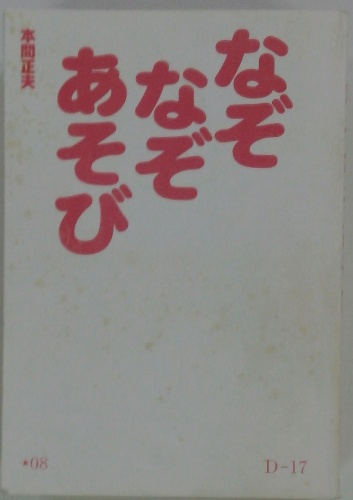 なぞ
なぞ
あそび
本間正夫
*08
D-17